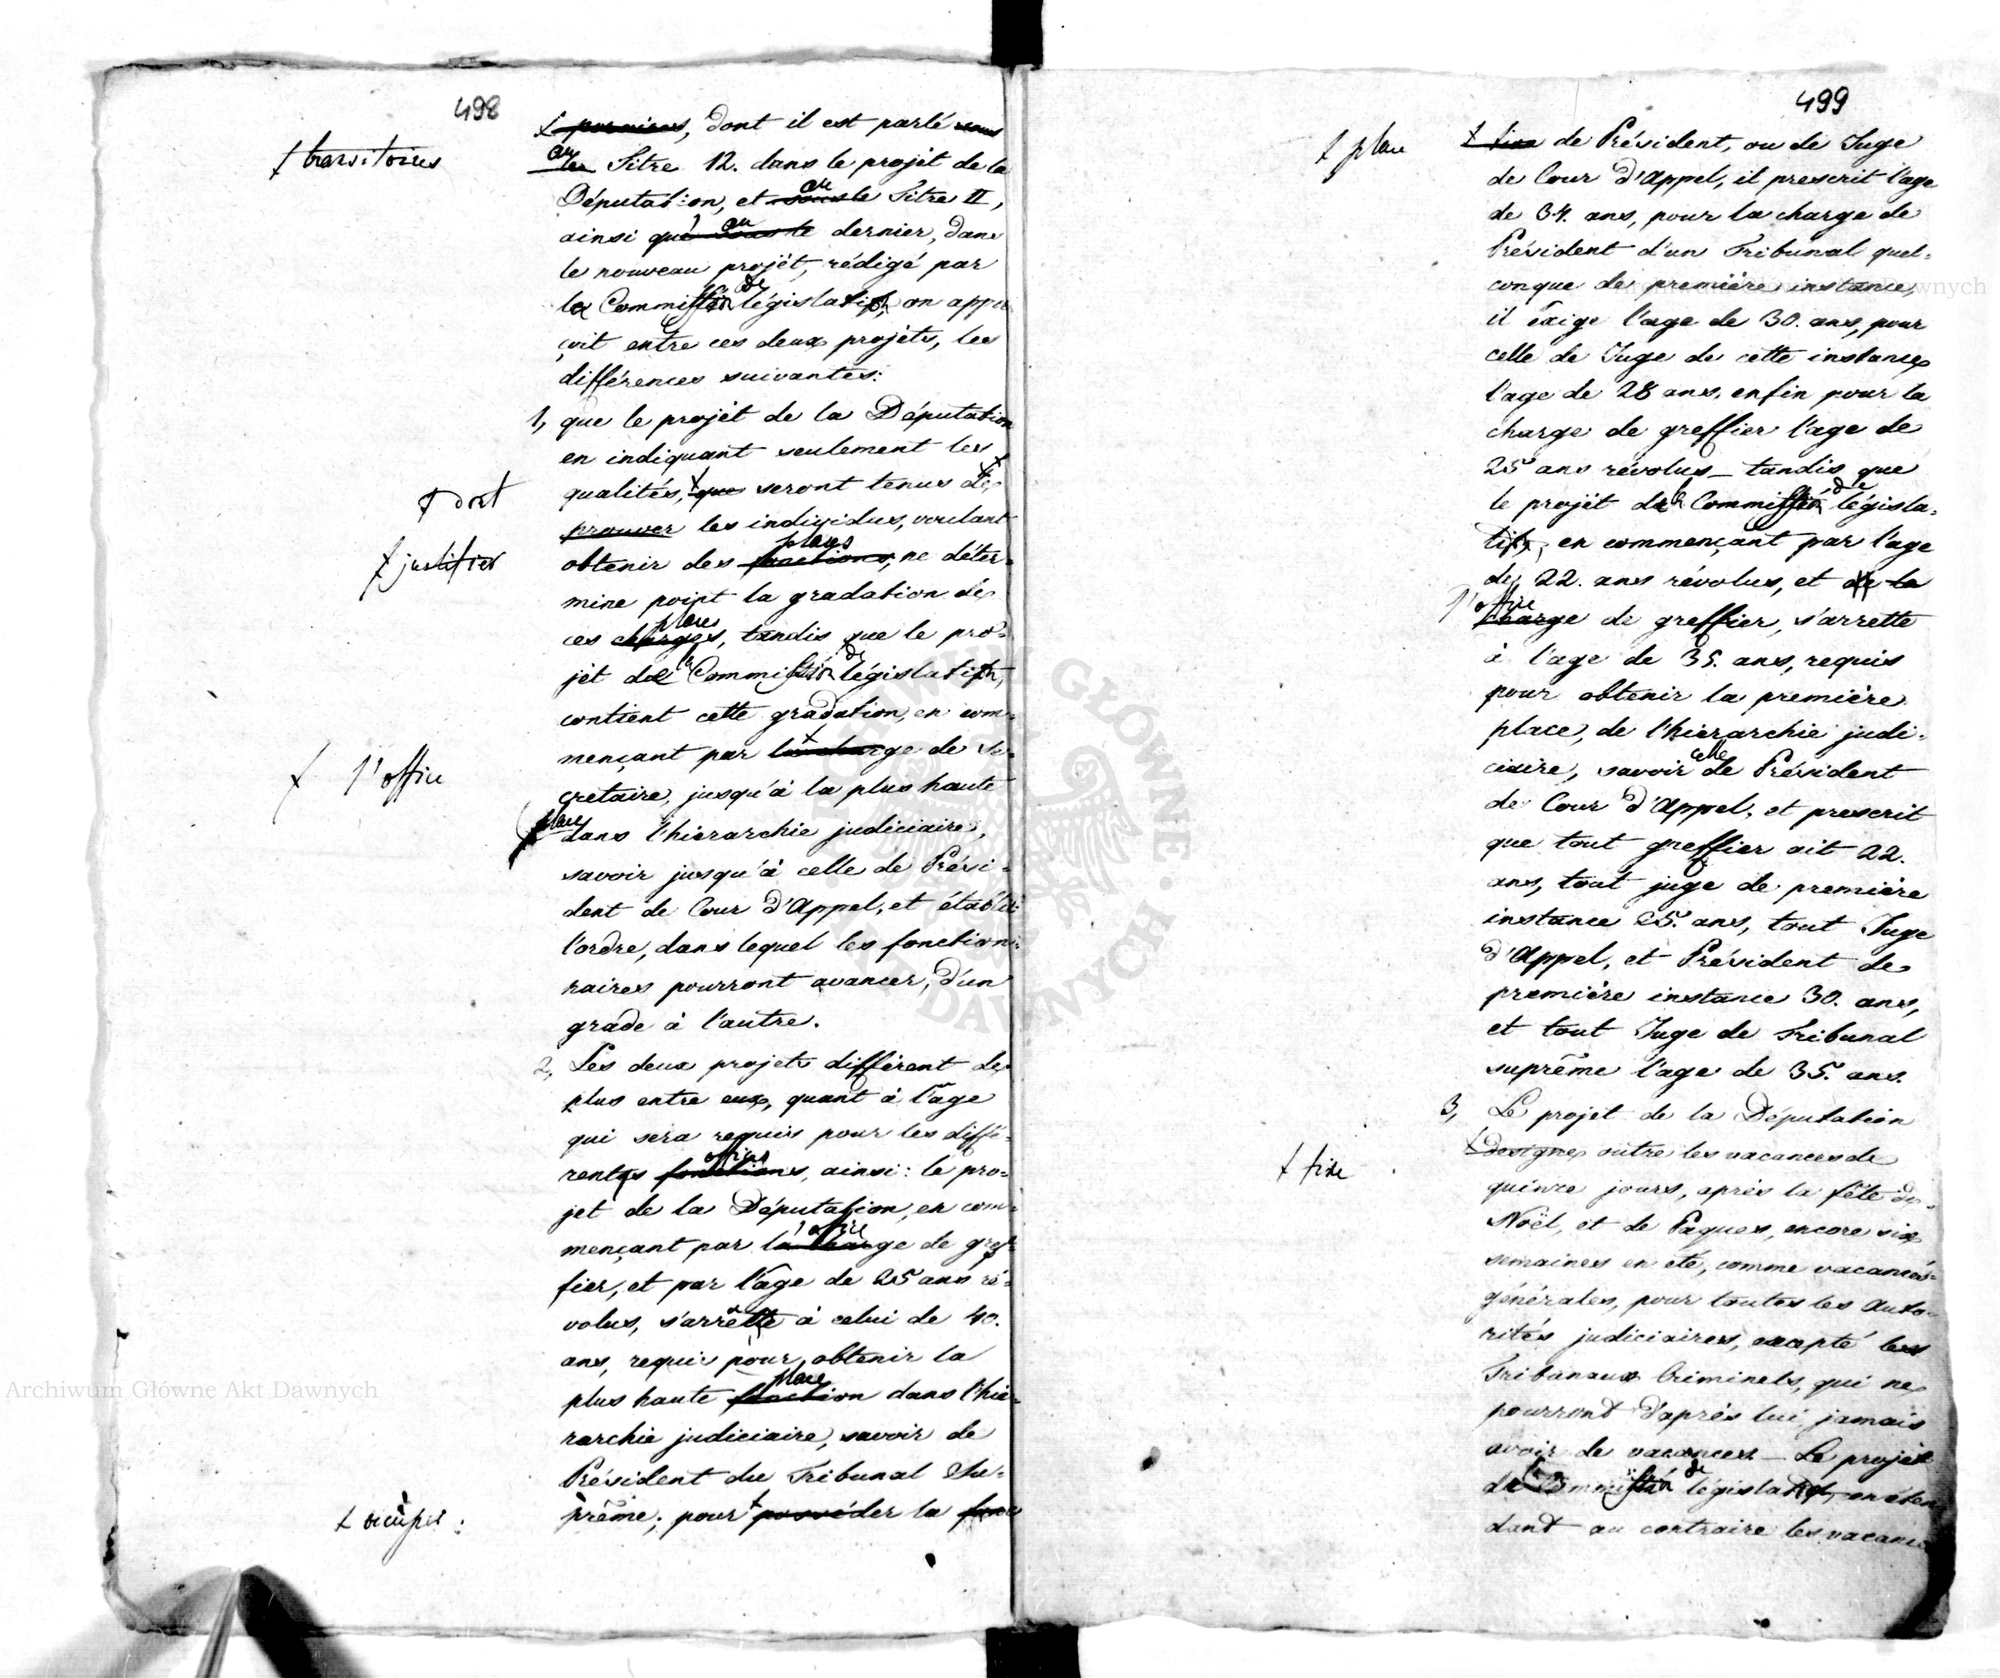 498
+ transitoires
+ dont
+ justifier
+ l'office
+ occuper
+ , dont il est parlé sous
au les Titre 12. dans le projét de la
Députation, et au sous le Titre II,
ainsi qué au sous le dernier, dans
le nouveau projét, rédigé par
la Commission de législation, on apper
çoit entre ces deux projéts, les
différences suivantes:
1, que le projét de la Députation
en indiquant seulement les
qualités, + que seront tenus de +
prouver les individus, voulant
obtenir des places fonctions, ne déter-
mine point la gradation de
ces places charges, tandis que le pro-
jét de la Commission de législation,
contient cette gradation, en com-
mençant par + la charge de Se-
cretaire, jusqu'à la plus haute
place dans l'hierarchie judiciaire,
savoir jusqu'à celle de Prési-
dent de Cour d'Appel, et établit
l'ordre, dans lequel les fonction-
naires pourront avancer, d'un
grade à l'autre.
2, Les deux projets différent de
plus entre eux, quant à l'age
qui sera requis pour les diffé-
rents offices fonctions, ainsi: le pro-
jet de la Députation, en com-
mençant par l'office la charge de gref-
fier, et par l'age de 25 ans ré-
volus, s'arrette à celui de 40.
ans, requis pour obtenir la
plus haute place fonction dans l'hie-
rarchie judiciaire, savoir de
Président du Tribunal Su-
prême; pour + posséder la fonc
499
+ place
+ fixe
+ tion de Président, ou de Juge
de Cour d'Appel, il prescrit l'age
de 34. ans, pour la charge de
Président d'un Tribunal quel-
conque de premiére instance,
il exige l'age de 30. ans, pour
celle de Juge de cette instance
l'age de 28 ans, enfin pour la
charge de greffier l'age de
25 ans révolus_ tandis que
le projét de la Commission de législa-
tion, en commençant par l'age
de 22. ans révolus, et de la
l'office charge de greffier, s'arrette
à l'age de 35. ans, requis
pour obtenir la premiére
place, de l'hierarchie judi-
ciaire, savoir celle de Président
de Cour d'Appel, et prescrit
que tout greffier ait 22.
ans, tout juge de premiére
instance 25. ans, tout Juge
d'Appel, et Président de
premiére instance 30. ans,
et tout Juge de Tribunal
suprême l'age de 35. ans.
3, Le projet de la Députation
+ designe outre les vacances de
quinze jours, aprés la fête de
Noël, et de Paques, encore six
semaines en eté, comme vacances
générales, pour toutes les Auto-
rités judiciaires, excepté les
Tribunaux Criminels, qui ne
pourront d'aprés lui jamais
avoir de vacances_ Le projét
de la Commission de législation, en éten
dant au contraire les vacances
Archiwum Główne Akt Dawnych
ARCHIWUM GŁÓWNE AKT DAWNYCH